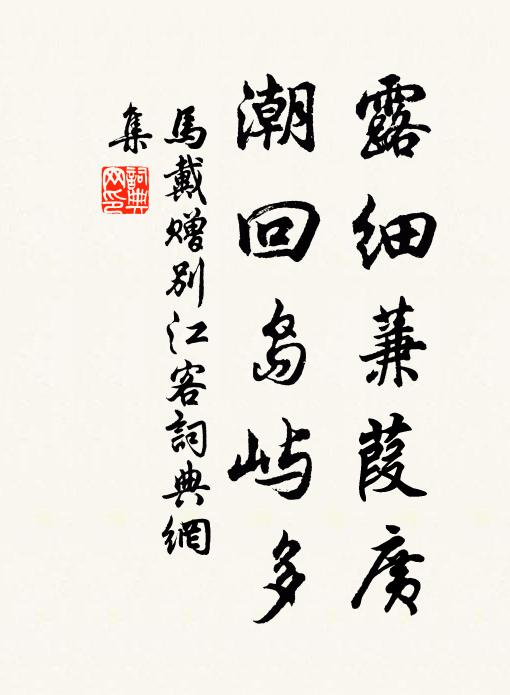 露细蒹葭广
潮回岛屿多
馬戴赠别江客詞典網
集
詞典网印